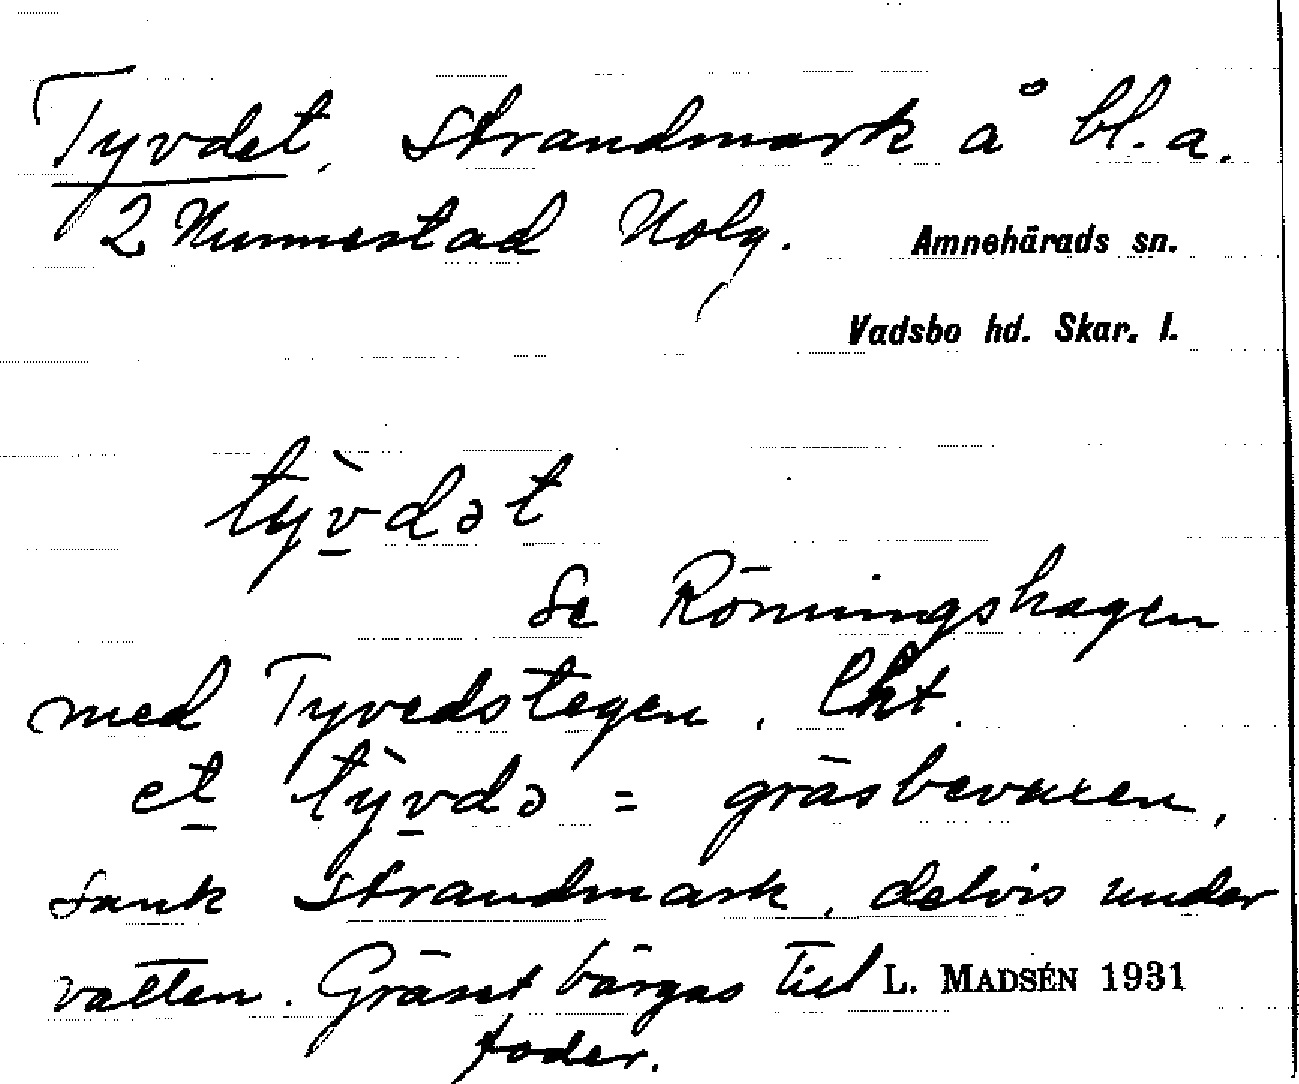 Tyvdet, Strandmark å bl. a.
2 Nunnestad Nolg.
Amnehärads sn.
Vadsbo hd. Skar. l.
tỳv̲dət
Se Röningshagen
med Tyvedstegen.
et̲ tỳv̲də = gräsbevuxen,
sank Strandmark, delvis under
vatten. Gräset bärgas till
foder.
L. MADSÉN 1931